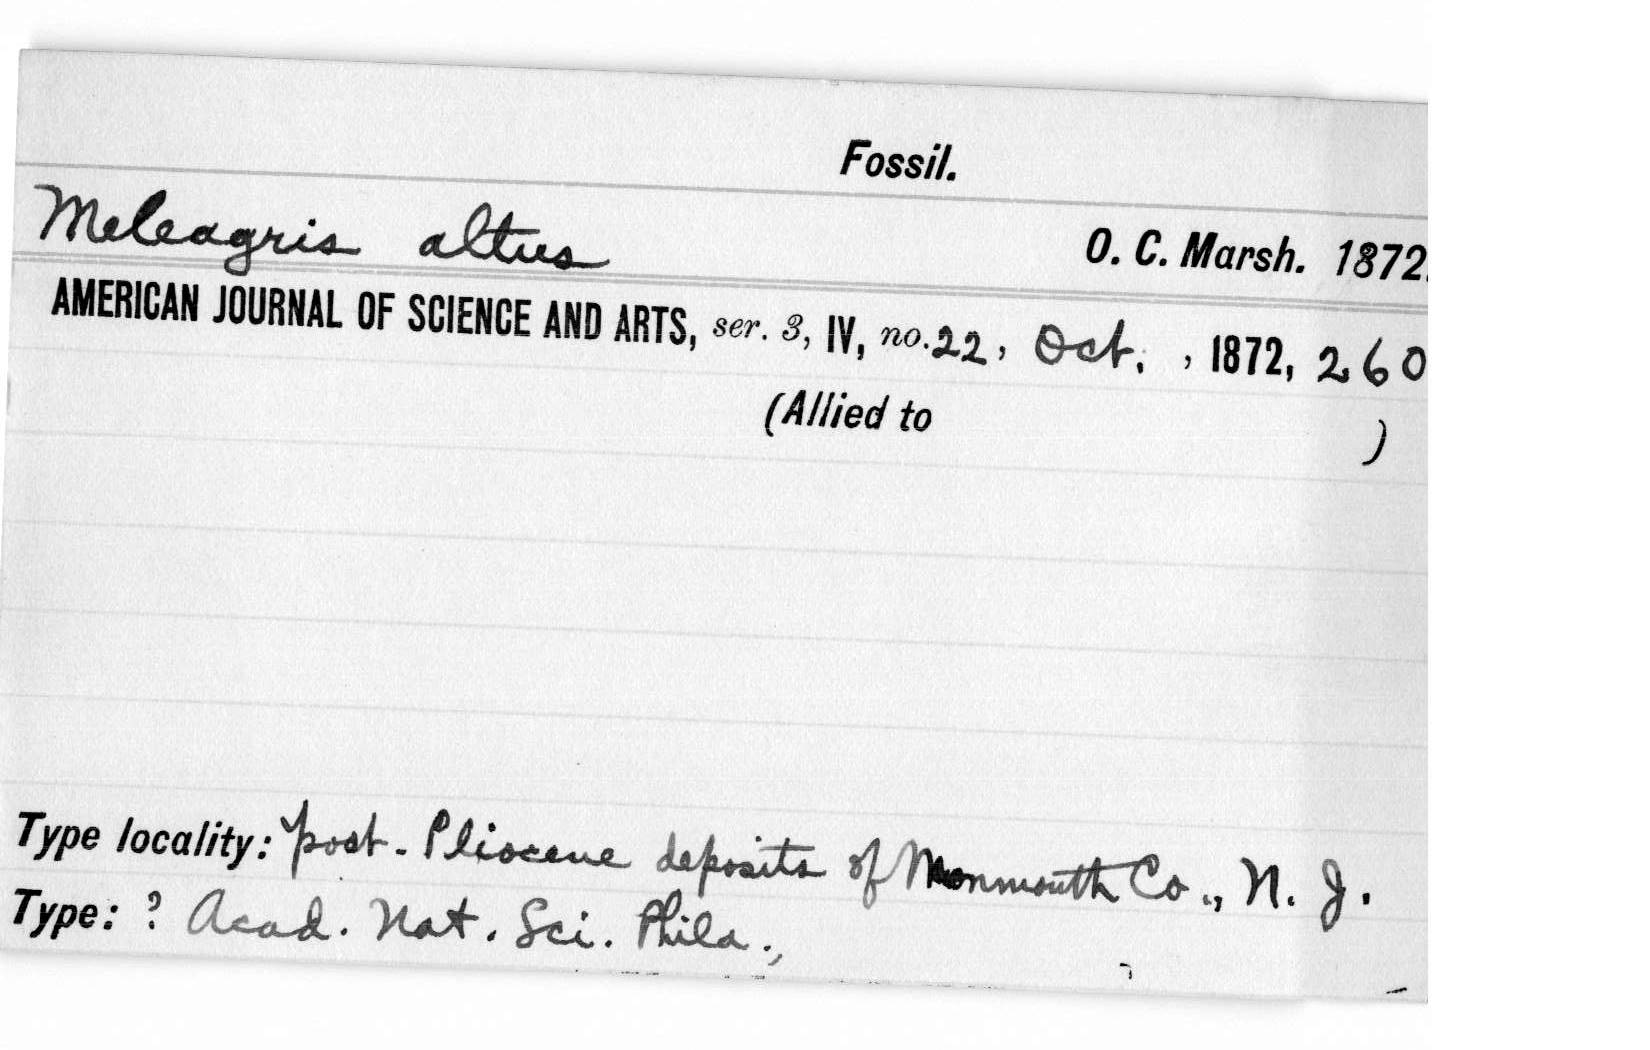 Fossil.
Meleagris altus O. C. Marsh. 1872.
AMERICAN JOURNAL OF SCIENCE AND ARTS, ser. 3, IV, no. 22, Oct. , 1872, 260
(Allied to )
Type locality: post-Pliocene deposits of Monmouth Co., N. J.
Type: ? Acad. Nat. Sci. Phila.,